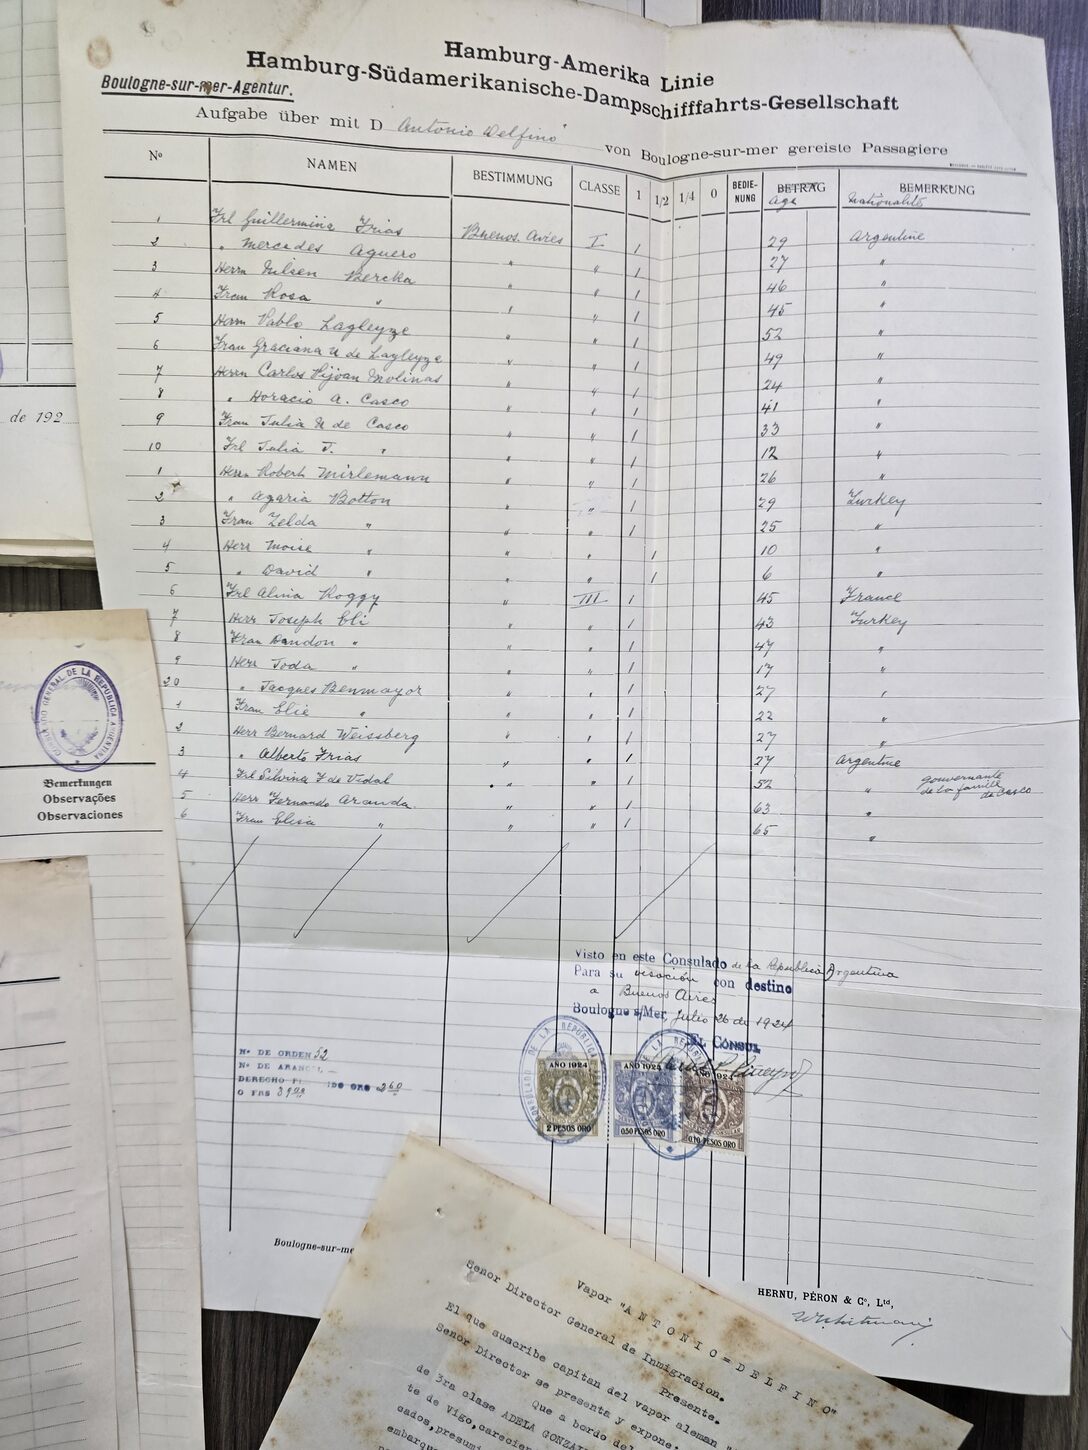 Hamburg-Amerika Linie
Hamburg-Südamerikanische-Dampschifffahrts-Gesellschaft
Boulogne-sur-mer-Agentur.
Aufgabe über mit D "Antonio Delfino" von Boulogne-sur-mer gereiste Passagiere
No NAMEN BESTIMMUNG CLASSE 1 1/2 1/4 0 BEDIE-NUNG BETRAG BEMERKUNG
Age Nationalité
1 Frl Guillermina Frias Buenos Aires I 1 29 Argentine
2 " Mercedes Aguero " " 1 27 "
3 Herrn Nilsen Bercka " " 1 46 "
4 Frau Rosa " " " 1 45 "
5 Herrn Pablo Lagleyze " " 1 52 "
6 Frau Graciana U de Lagleyze " " 1 49 "
7 Herrn Carlos Molinas " " 1 24 "
8 " Horacio A. Casco " " 1 41 "
9 Frau Julia U de Casco " " 1 33 "
10 Frl Julia T. " " " 1 12 "
1 Herrn Robert Mirlemann " " 1 26 "
2 " Agaria Botton " " 1 29 Turkey
3 Frau Zelda " " " 1 25 "
4 Herr Moise " " " 1 10 "
5 " David " " " 1 6 "
6 Frl Alina Koggy " III 1 45 France
7 Herr Joseph Eli " " 1 43 Turkey
8 Frau Dandon " " " 1 47 "
9 Herr Toda " " " 1 17 "
20 " Jacques Benmayor " " 1 27 "
1 Frau Elie " " " 1 22 "
2 Herr Bernard Weissberg " " 1 27 "
3 " Alberto Frias " " 1 27 Argentine
4 Frl Silvina F de Vidal " " 1 52 " gouvernante de la famille de Casco
5 Herr Fernando Aranda " " 1 63 "
6 Frau Elisa " " " 1 65 "
Visto en este Consulado de la Republica Argentina
Para su visación con destino
a Buenos Aires
Boulogne s/Mer, Julio 26 de 1924
EL CONSUL
No DE ORDEN 52
No DE ARANCEL
DERECHO DO ORO 2.60
O FRS 39.00
CONSULADO DE LA REPUBLICA
AÑO 1924
2 PESOS ORO
AÑO 1924
0.50 PESOS ORO
AÑO 1924
0.10 PESOS ORO
Boulogne-sur-me
HERNU, PÉRON & Co, Ltd,
de 192
CONSULADO GENERAL DE LA REPUBLICA ARGENTINA
Bemerkungen
Observações
Observaciones
Vapor "ANTONIO=DELFINO"
Señor Director General de Inmigracion.
Presente.
El que suscribe capitan del vapor aleman "
Señor Director se presenta y expone:
Que a bordo del
de 3ra clase ADELA GONZAL
te de Vigo, carecien
cados, presumi
embarqu